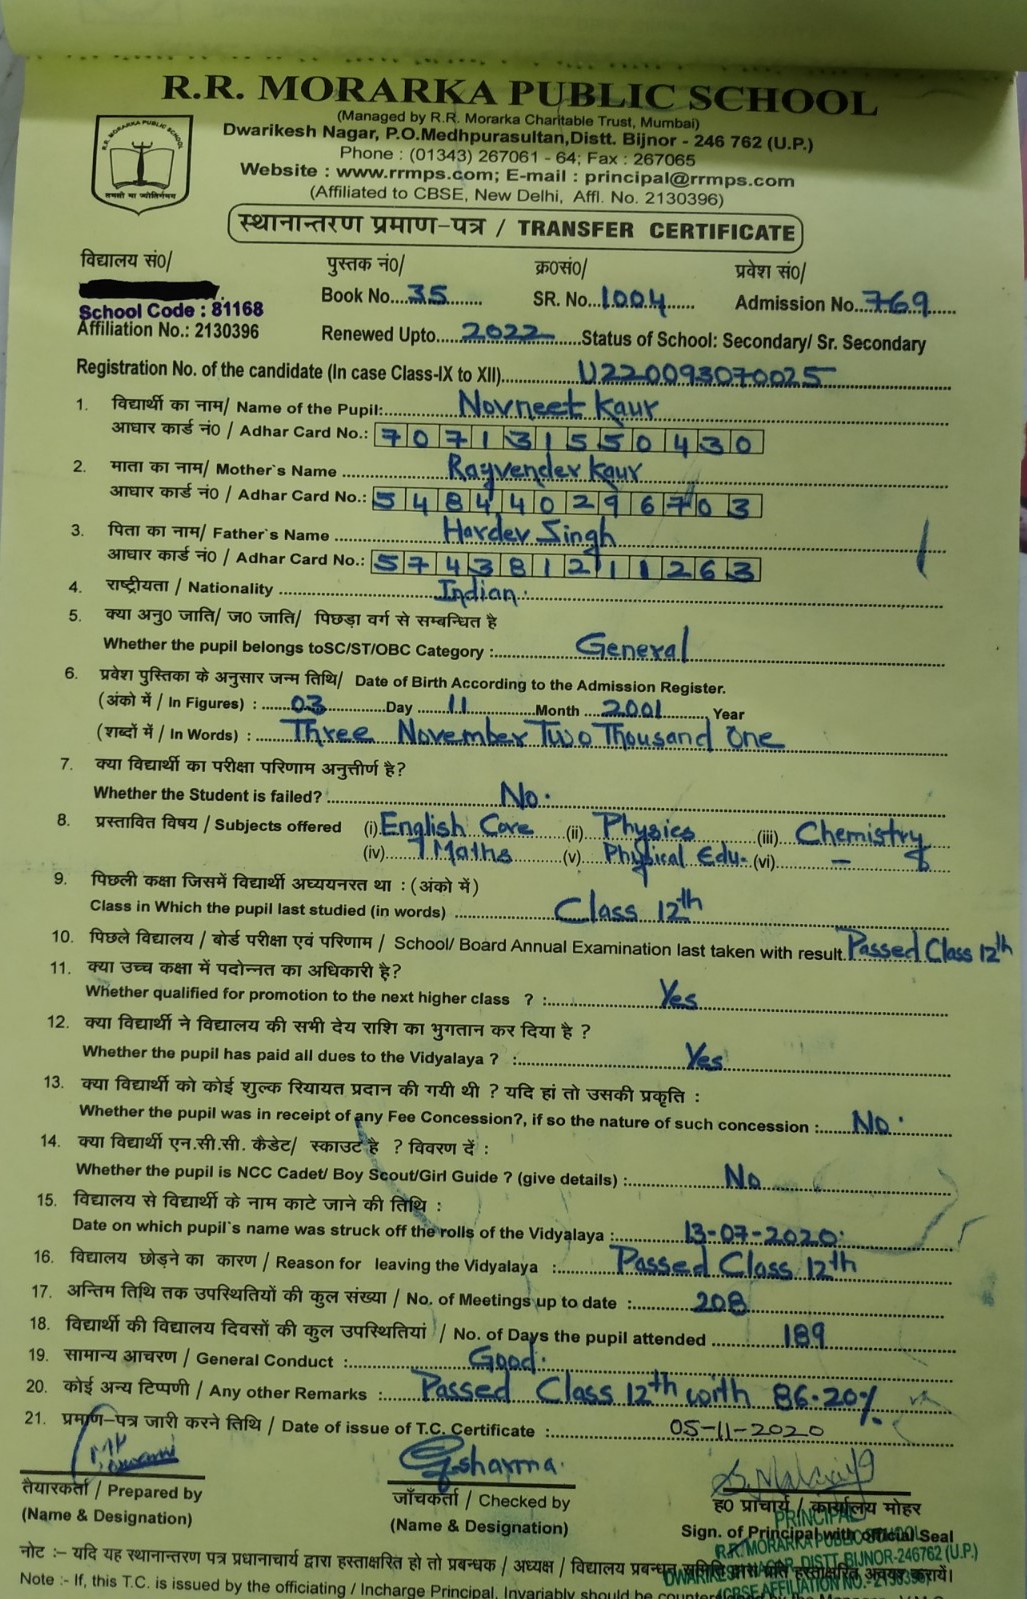 R.R. MORARKA PUBLIC SCHOOL
(Managed by R.R. Morarka Charitable Trust, Mumbai)
Dwarikesh Nagar, P.O.Medhpurasultan,Distt. Bijnor - 246 762 (U.P.)
Phone : (01343) 267061 - 64; Fax : 267065
Website : www.rrmps.com; E-mail : principal@rrmps.com
(Affiliated to CBSE, New Delhi, Affl. No. 2130396)
R.R. MORARKA PUBLIC SCHOOL
तमसो मा ज्योतिर्गमय
स्थानान्तरण प्रमाण-पत्र / TRANSFER CERTIFICATE
विद्यालय सं0/ पुस्तक नं0/ क्र0सं0/ प्रवेश सं0/
Book No....35....... SR. No...1004...... Admission No..769.....
School Code : 81168
Affiliation No.: 2130396 Renewed Upto.....2022.....Status of School: Secondary/ Sr. Secondary
Registration No. of the candidate (In case Class-IX to XII)...........U220093070025
1. विद्यार्थी का नाम/ Name of the Pupil:..........Novneet Kaur
आधार कार्ड नं0 / Adhar Card No.: 707131550430
2. माता का नाम/ Mother`s Name ..........Rayvender Kaur
आधार कार्ड नं0 / Adhar Card No.: 548440296703
3. पिता का नाम/ Father`s Name ..........Hardev Singh
आधार कार्ड नं0 / Adhar Card No.: 574381211263
4. राष्ट्रीयता / Nationality ..........Indian.
5. क्या अनु0 जाति/ ज0 जाति/ पिछड़ा वर्ग से सम्बन्धित है
Whether the pupil belongs toSC/ST/OBC Category :..........General
6. प्रवेश पुस्तिका के अनुसार जन्म तिथि/ Date of Birth According to the Admission Register.
(अंको में / In Figures) : ......03......Day ......11......Month ...2001...... Year
(शब्दों में / In Words) : .....Three November Two Thousand One
7. क्या विद्यार्थी का परीक्षा परिणाम अनुत्तीर्ण है?
Whether the Student is failed? ..........No.
8. प्रस्तावित विषय / Subjects offered (i) English Core (ii) Physics (iii) Chemistry
(iv) Maths (v) Physical Edu. (vi) –
9. पिछली कक्षा जिसमें विद्यार्थी अध्ययनरत था : (अंको में)
Class in Which the pupil last studied (in words) ..........Class 12th
10. पिछले विद्यालय / बोर्ड परीक्षा एवं परिणाम / School/ Board Annual Examination last taken with result.Passed Class 12th
11. क्या उच्च कक्षा में पदोन्नत का अधिकारी है?
Whether qualified for promotion to the next higher class ? :..........Yes
12. क्या विद्यार्थी ने विद्यालय की सभी देय राशि का भुगतान कर दिया है ?
Whether the pupil has paid all dues to the Vidyalaya ? :..........Yes
13. क्या विद्यार्थी को कोई शुल्क रियायत प्रदान की गयी थी ? यदि हां तो उसकी प्रकृति :
Whether the pupil was in receipt of any Fee Concession?, if so the nature of such concession :.....No.
14. क्या विद्यार्थी एन.सी.सी. कैडेट/ स्काउट है ? विवरण दें :
Whether the pupil is NCC Cadet/ Boy Scout/Girl Guide ? (give details) :..........No
15. विद्यालय से विद्यार्थी के नाम काटे जाने की तिथि :
Date on which pupil`s name was struck off the rolls of the Vidyalaya :..........13-07-2020.
16. विद्यालय छोड़ने का कारण / Reason for leaving the Vidyalaya :..........Passed Class 12th
17. अन्तिम तिथि तक उपस्थितियों की कुल संख्या / No. of Meetings up to date :..........208
18. विद्यार्थी की विद्यालय दिवसों की कुल उपस्थितियां / No. of Days the pupil attended ..........189
19. सामान्य आचरण / General Conduct :..........Good.
20. कोई अन्य टिप्पणी / Any other Remarks :.....Passed Class 12th with 86.20%
21. प्रमाण-पत्र जारी करने तिथि / Date of issue of T.C. Certificate :..........05-11-2020
Gsharma.
तैयारकर्ता / Prepared by जाँचकर्ता / Checked by ह0 प्राचार्य / कार्यालय मोहर
(Name & Designation) (Name & Designation) Sign. of Principal with official Seal
PRINCIPAL
R.R. MORARKA PUBLIC SCHOOL
DWARIKESH NAGAR, DISTT. BIJNOR-246762 (U.P.)
(CBSE AFFILIATION NO.-2130396)
नोट :– यदि यह स्थानान्तरण पत्र प्रधानाचार्य द्वारा हस्ताक्षरित हो तो प्रबन्धक / अध्यक्ष / विद्यालय प्रबन्धन समिति द्वारा प्रति हस्ताक्षरित अवश्य करायें।
Note :- If, this T.C. is issued by the officiating / Incharge Principal, Invariably should be